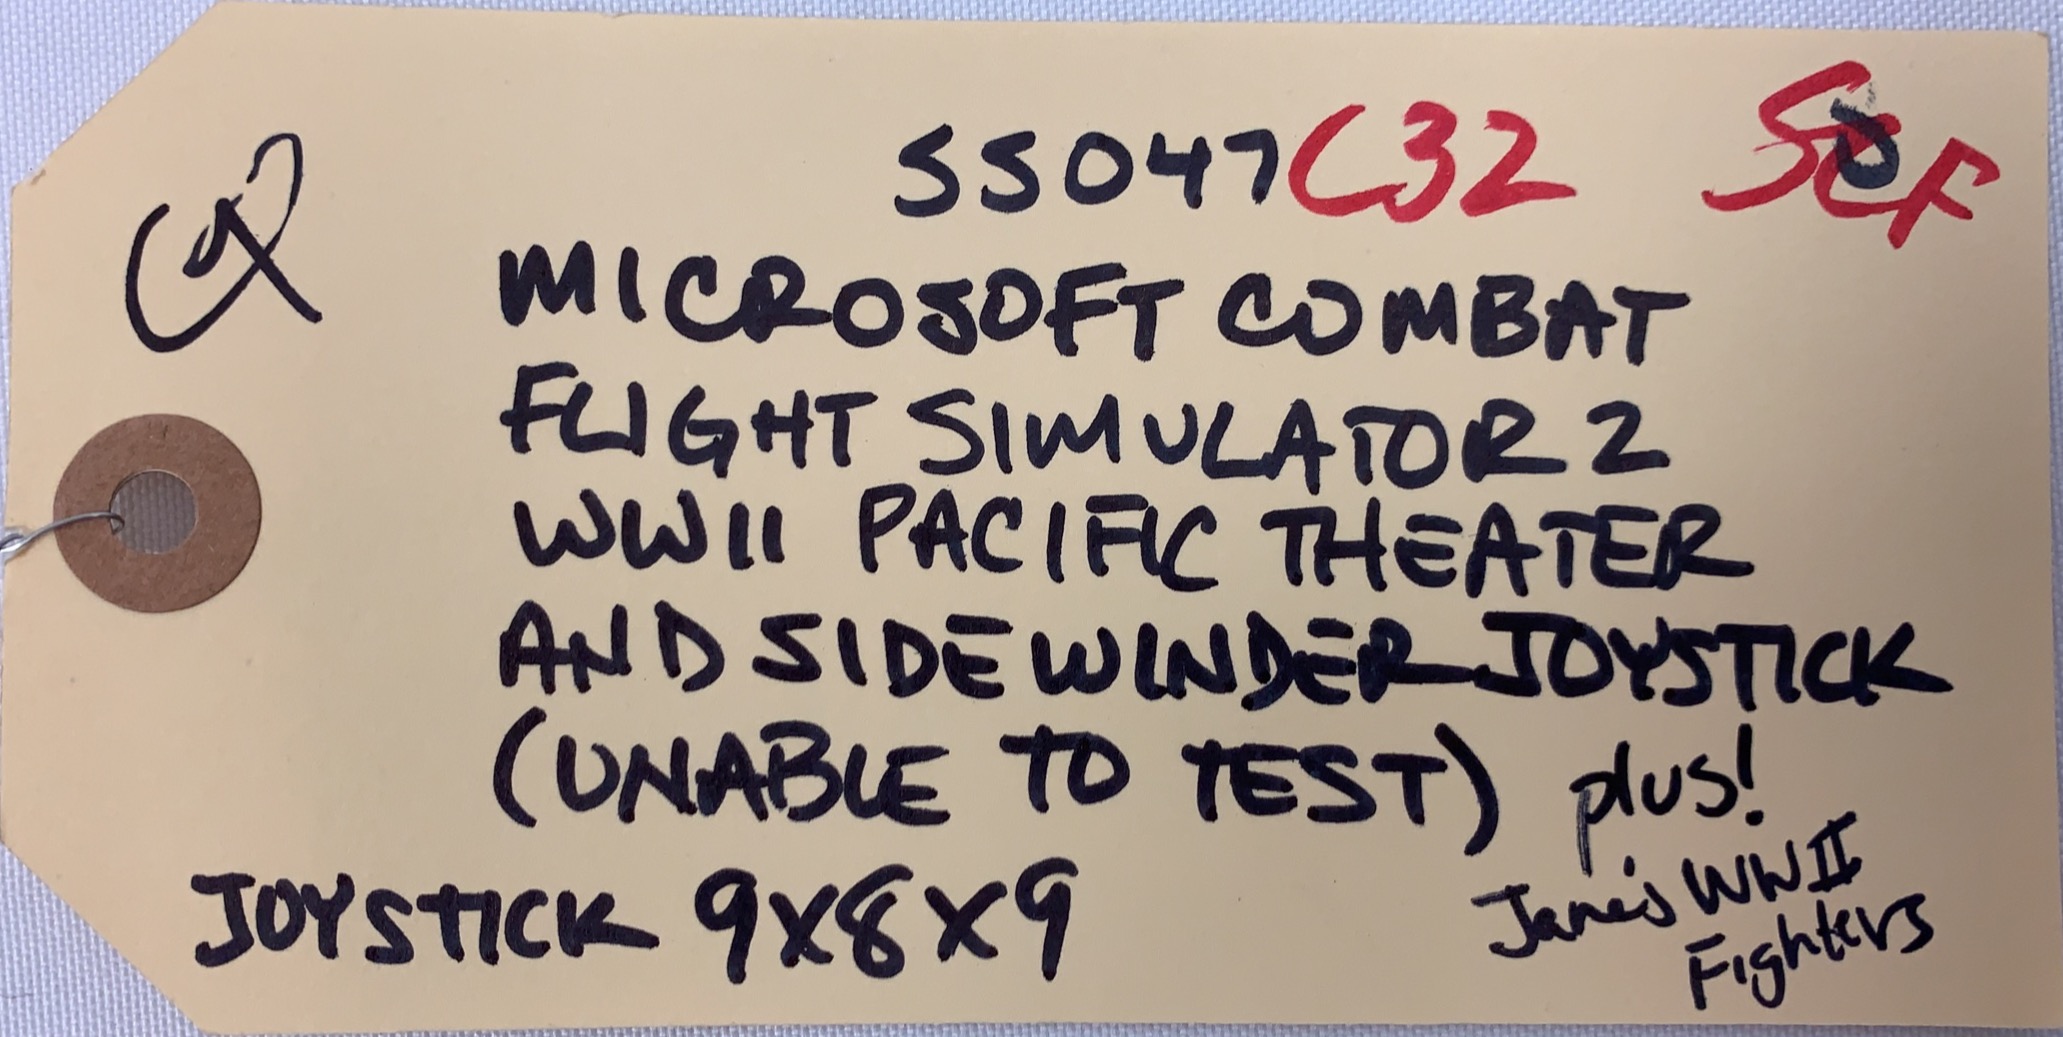 SS047C32
MICROSOFT COMBAT
FLIGHT SIMULATOR 2
WWII PACIFIC THEATER
AND SIDEWINDER JOYSTICK
(UNABLE TO TEST) plus!
Jane's WWII
Fighters
JOYSTICK 9X8X9